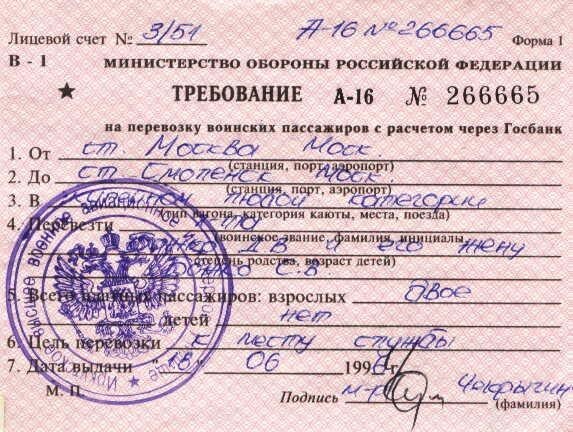 Лицевой счет № 3/51 А-16 №266665 Форма 1
В - 1 МИНИСТЕРСТВО ОБОРОНЫ РОССИЙСКОЙ ФЕДЕРАЦИИ
★ ТРЕБОВАНИЕ А-16 № 266665
на перевозку воинских пассажиров с расчетом через Госбанк
1. От ст. Москва Моск.
(станция, порт, аэропорт)
2. До ст. Смоленск Моск.
(станция, порт, аэропорт)
3. В любой категории
(тип вагона, категория каюты, места, поезда)
4. Перевезти
(воинское звание, фамилия, инициалы,
и его жену
степень родства, возраст детей)
С.В.
5. Всего воинских пассажиров: взрослых двое
детей нет
6. Цель перевозки к месту службы
7. Дата выдачи "18" 06 199 г.
М. П. Подпись м-р Чекрыгин
(фамилия)